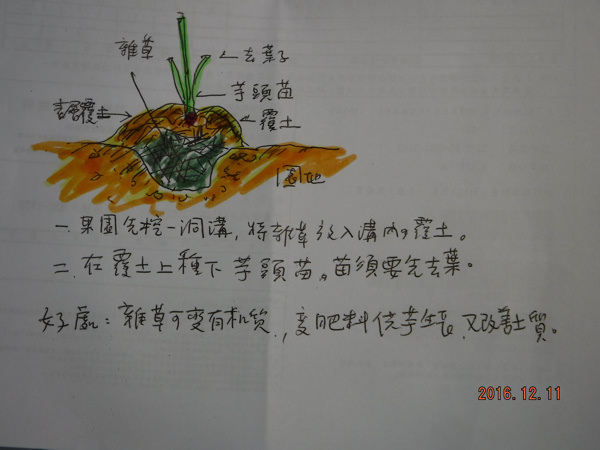 雜草
去葉子
芋頭苗
覆土
覆土
園地
一.果園先挖一洞溝,將雜草放入溝內,覆土。
二.在覆土上種下芋頭苗。苗須要先去葉。
好處:雜草可变有机质,,变肥料供芋生長,又改善土質。
2016.12.11